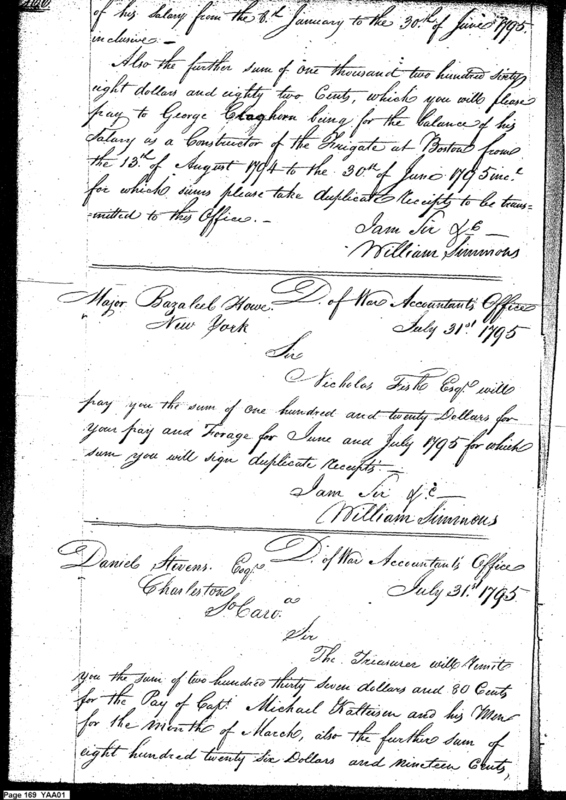 of his Salary from the 8th January to the 30th of June 1795
inclusive. —
Also the further sum of one thousand two hundred sixty
eight dollars and eighty two Cents, which you will please
pay to George Claghorn being for the balance of his
Salary as a Constructor of the Frigate at Boston from
the 13th of August 1794 to the 30th of June 1795 incl.
for which sums please take duplicate Receipts to be trans=
=mitted to this Office. —
I am Sir &c —
William Simmons
Major Bazaleel Howe. D. of War Accountant's Office
New York July 31st 1795
Sir
Nicholas Fish Esqr. will
pay you the sum of one hundred and twenty Dollars for
your pay and Forage for June and July 1795 for which
sum you will sign duplicate Receipts —
I am Sir &c —
William Simmons
Daniel Stevens. Esqr. D. of War Accountant's Office
Charleston July 31st 1795
So Caroa.
Sir
The Treasurer will remit
you the sum of two hundred thirty seven dollars and 80 Cents
for the Pay of Capt. Michael Kalteisen and his Men
for the Month of March, also the further sum of
eight hundred twenty six Dollars and nineteen Cents,
Page 169 YAA01